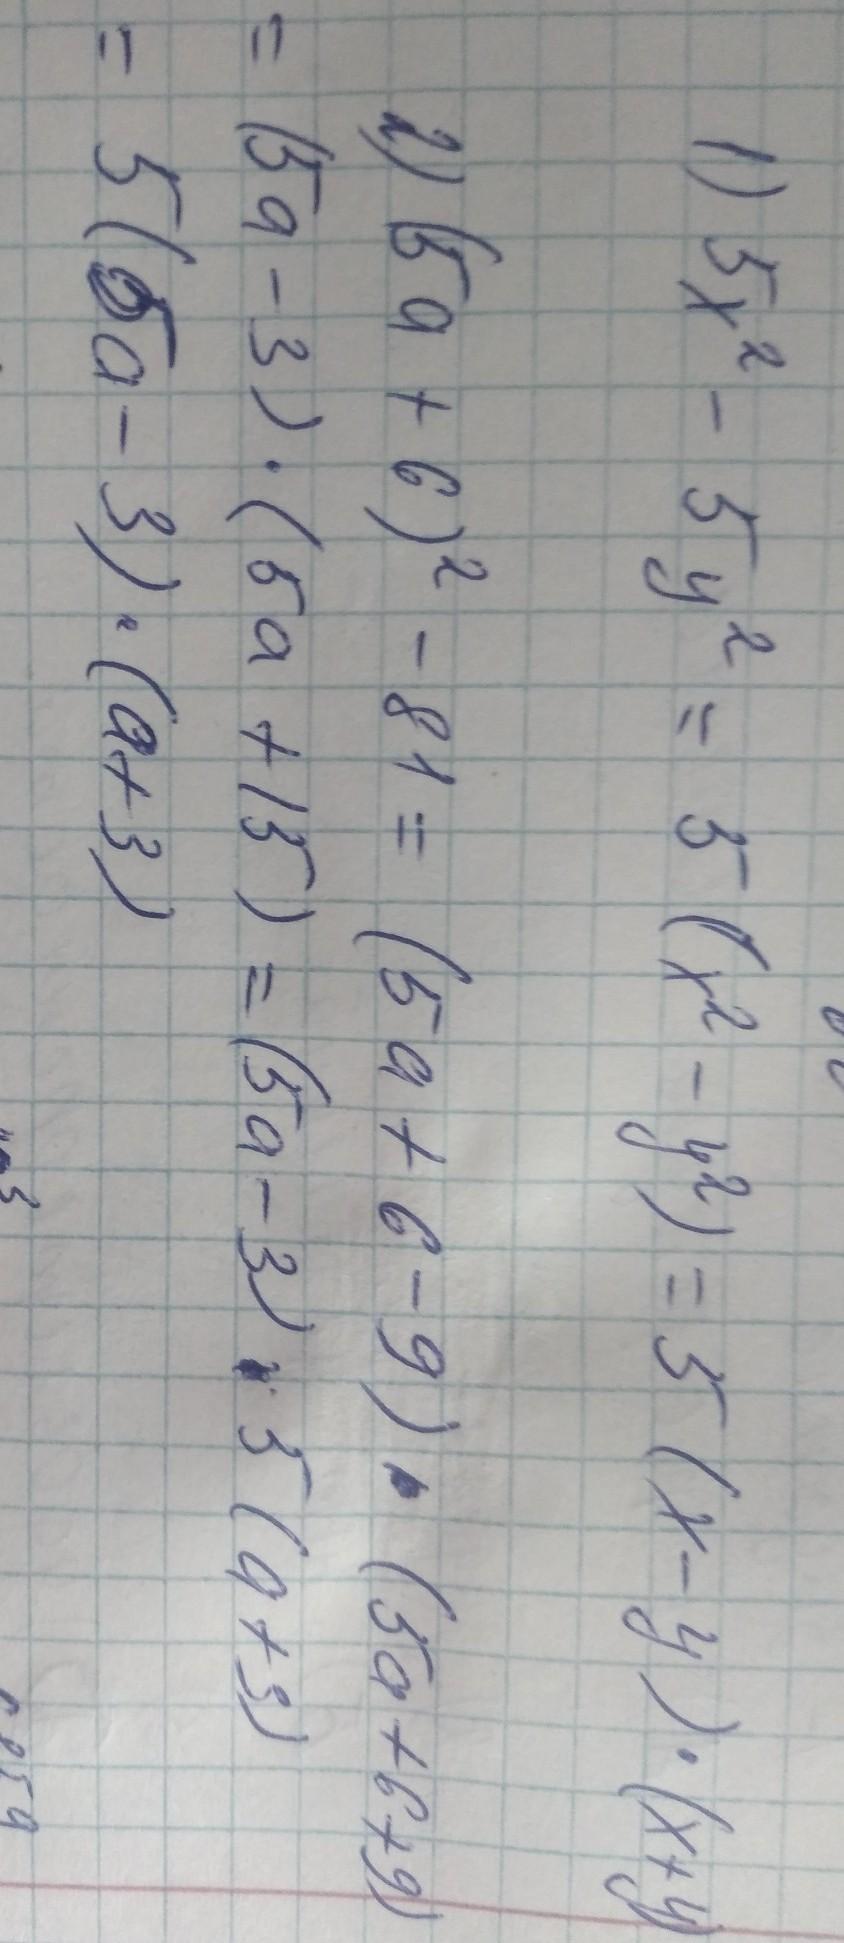 1) 5x² - 5y² = 5(x² - y²) = 5(x - y)·(x+y)
2) (5a + 6)² - 81 = (5a + 6 - 9)·(5a + 6 + 9)
= (5a - 3)·(5a + 15) = (5a - 3)·5(a + 3)
= 5(5a - 3)·(a+3)